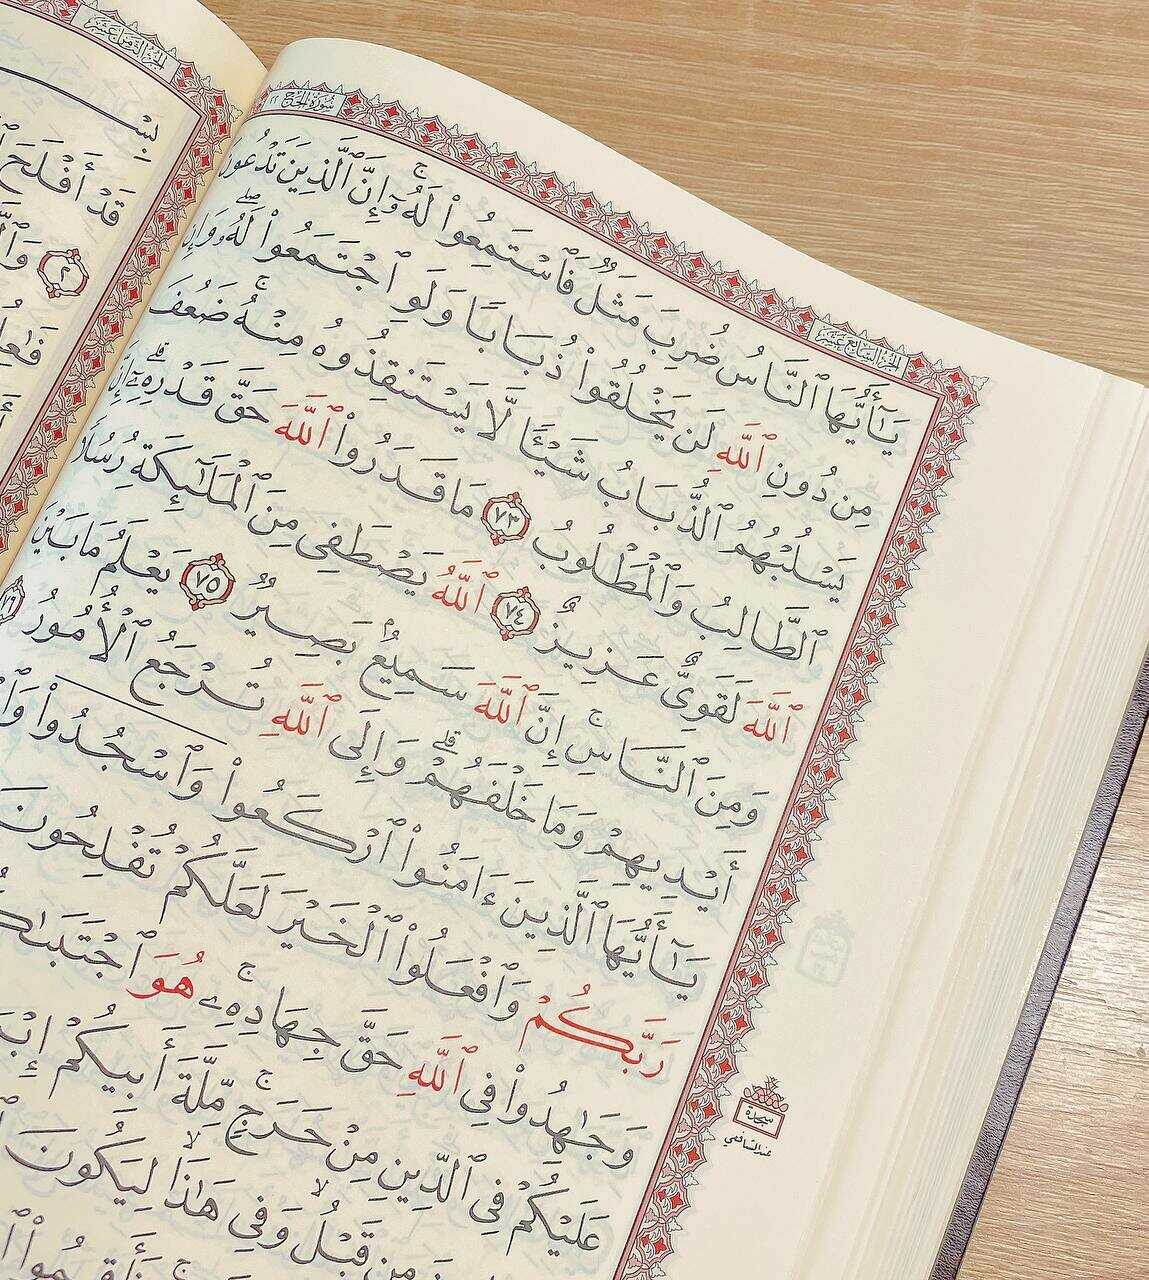 سُورَةُ الحَجِّ ٢٢
الجُزْءُ السَّابِعَ عَشَرَ
يَٰٓأَيُّهَا ٱلنَّاسُ ضُرِبَ مَثَلٌ فَٱسْتَمِعُوا۟ لَهُۥٓ ۚ إِنَّ ٱلَّذِينَ تَدْعُونَ
مِن دُونِ ٱللَّهِ لَن يَخْلُقُوا۟ ذُبَابًا وَلَوِ ٱجْتَمَعُوا۟ لَهُۥ ۖ وَإِن
يَسْلُبْهُمُ ٱلذُّبَابُ شَيْـًٔا لَّا يَسْتَنقِذُوهُ مِنْهُ ۚ ضَعُفَ
ٱلطَّالِبُ وَٱلْمَطْلُوبُ ٧٣ مَا قَدَرُوا۟ ٱللَّهَ حَقَّ قَدْرِهِۦٓ ۗ إِنَّ
ٱللَّهَ لَقَوِىٌّ عَزِيزٌ ٧٤ ٱللَّهُ يَصْطَفِى مِنَ ٱلْمَلَٰٓئِكَةِ رُسُلًا
وَمِنَ ٱلنَّاسِ ۚ إِنَّ ٱللَّهَ سَمِيعٌۢ بَصِيرٌ ٧٥ يَعْلَمُ مَا بَيْنَ
أَيْدِيهِمْ وَمَا خَلْفَهُمْ ۗ وَإِلَى ٱللَّهِ تُرْجَعُ ٱلْأُمُورُ
يَٰٓأَيُّهَا ٱلَّذِينَ ءَامَنُوا۟ ٱرْكَعُوا۟ وَٱسْجُدُوا۟
رَبَّكُمْ وَٱفْعَلُوا۟ ٱلْخَيْرَ لَعَلَّكُمْ تُفْلِحُونَ
وَجَٰهِدُوا۟ فِى ٱللَّهِ حَقَّ جِهَادِهِۦ ۚ هُوَ ٱجْتَبَىٰكُمْ
عَلَيْكُمْ فِى ٱلدِّينِ مِنْ حَرَجٍ ۚ مِّلَّةَ أَبِيكُمْ
مِن قَبْلُ وَفِى هَٰذَا لِيَكُونَ
سجدة
عند الشافعي
الجُزْءُ الثَّامِنَ عَشَرَ
بِسْمِ
قَدْ أَفْلَحَ
٢